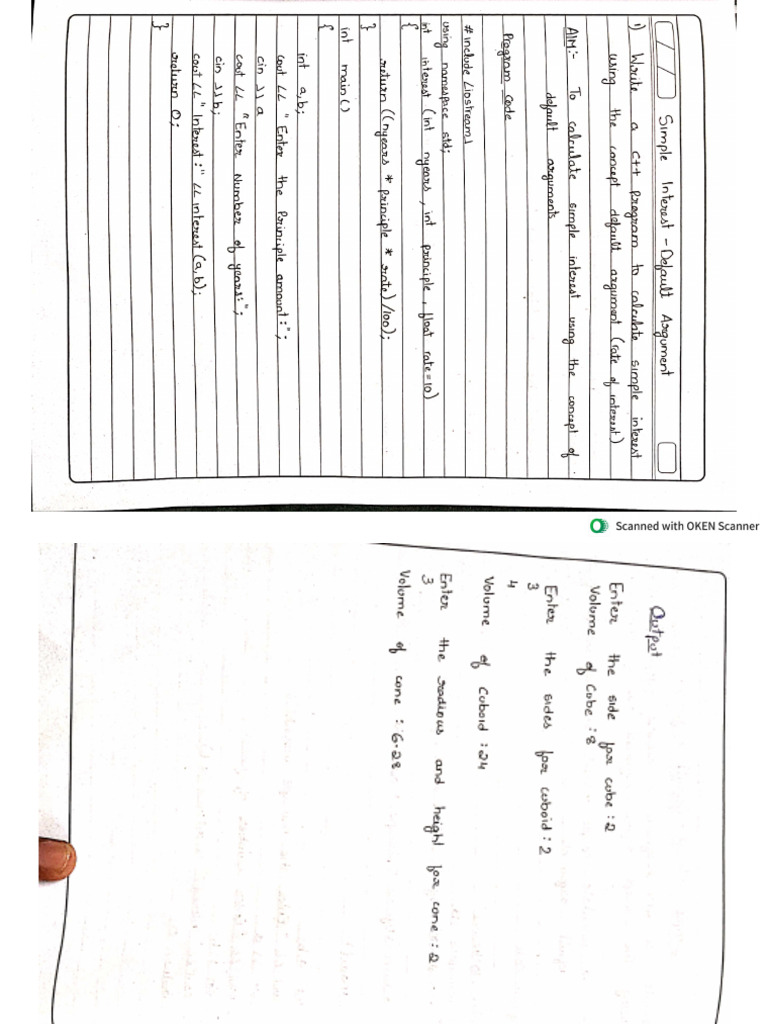 Simple Interest - Default Argument
1) Write a C++ program to calculate simple interest
using the concept default argument (rate of interest)
AIM:- To calculate simple interest using the concept of
default arguments
Program Code
#include <iostream>
using namespace std;
int interest (int nyears, int principle, float rate=10)
{
return ((nyears * principle * rate)/100);
}
int main()
{
int a,b;
cout << "Enter the Priniple amount:";
cin >> a
cout << "Enter Number of years:";
cin >> b;
cout << "Interest:" << interest(a,b);
return 0;
}
Scanned with OKEN Scanner
Output
Enter the side for cube : 2
Volume of Cube : 8
Enter the sides for cuboid : 2
3
4
Volume of Cuboid : 24
Enter the radious and height for cone : 2
3
Volume of cone : 6.28